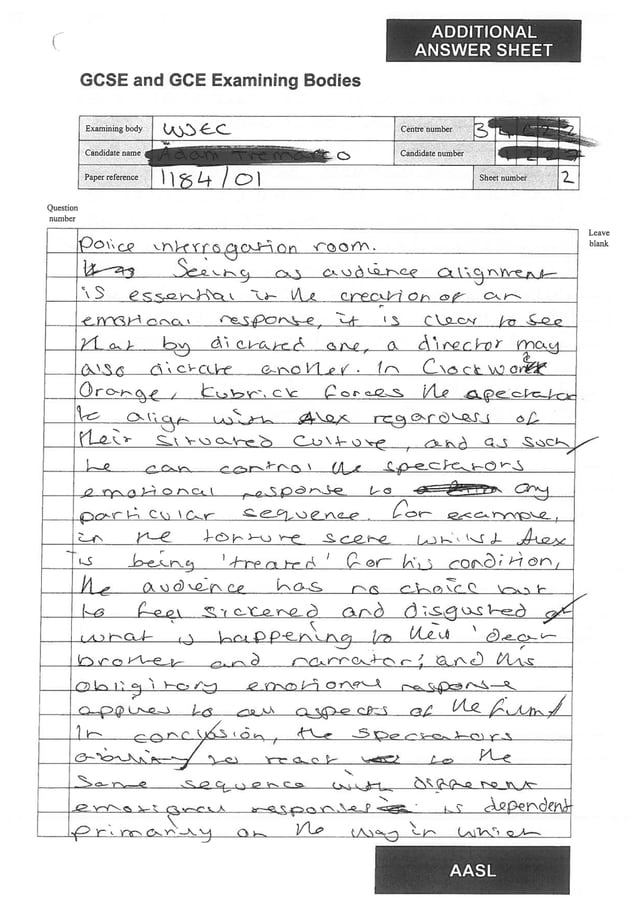 ADDITIONAL
ANSWER SHEET
GCSE and GCE Examining Bodies
Examining body WJEC Centre number 3
Candidate name Candidate number
Paper reference 1184/01 Sheet number 2
Question
number
Leave
blank
Police interrogation room.
Seeing as audience alignment
is essential in the creation of an
emotional response, it is clear to see
that by dictated one, a director may
also dictate another. In Clockwork
Orange, Kubrick forces the spectator
to align with Alex regardless of
their situated culture, and as such
he can control the spectators
emotional response to any
particular sequence. For example,
in the torture scene whilst Alex
is being 'treated' for his condition,
the audience has no choice but
to feel sickened and disgusted at
what is happening to their 'dear
brother and narrator', and this
obligitory emotional response
applies to all aspects of the film.
In conclusion, the spectators
ability to react to the
same sequence with different
emotional responses is dependent
primarily on the way in which
AASL